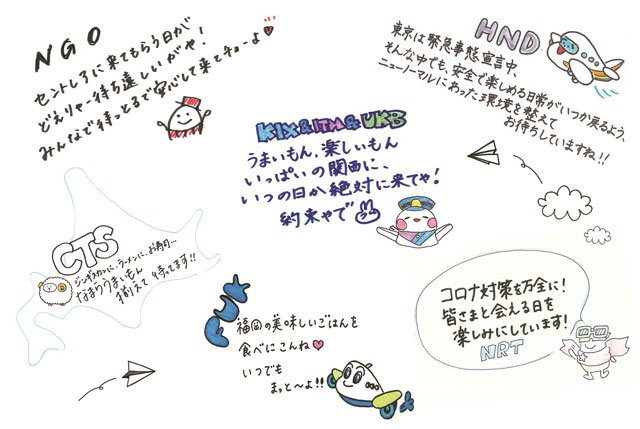 NGO
セントレアに来てもらう日が
どえりゃー待ち遠しいがや!
みんなで待っとるで安心して来てチョーよ♥
HND
東京は緊急事態宣言中、
そんな中でも、安全で楽しめる日常がいつか戻るよう、
ニューノーマルにあった環境を整えて
お待ちしていますね!!
KIX&ITM&UKB
うまいもん、楽しいもん
いっぱいの関西に、
いつの日か絶対に来てや!
約束やで
CTS
ジンギスカンに、ラーメンに、お寿司…
なまらうまいもん
揃えて待ってます!!
コロナ対策を万全に!
皆さまと会える日を
楽しみにしています!
NRT
FUK
福岡の美味しいごはんを
食べにこんね♥
いつでも
まっと〜よ!!